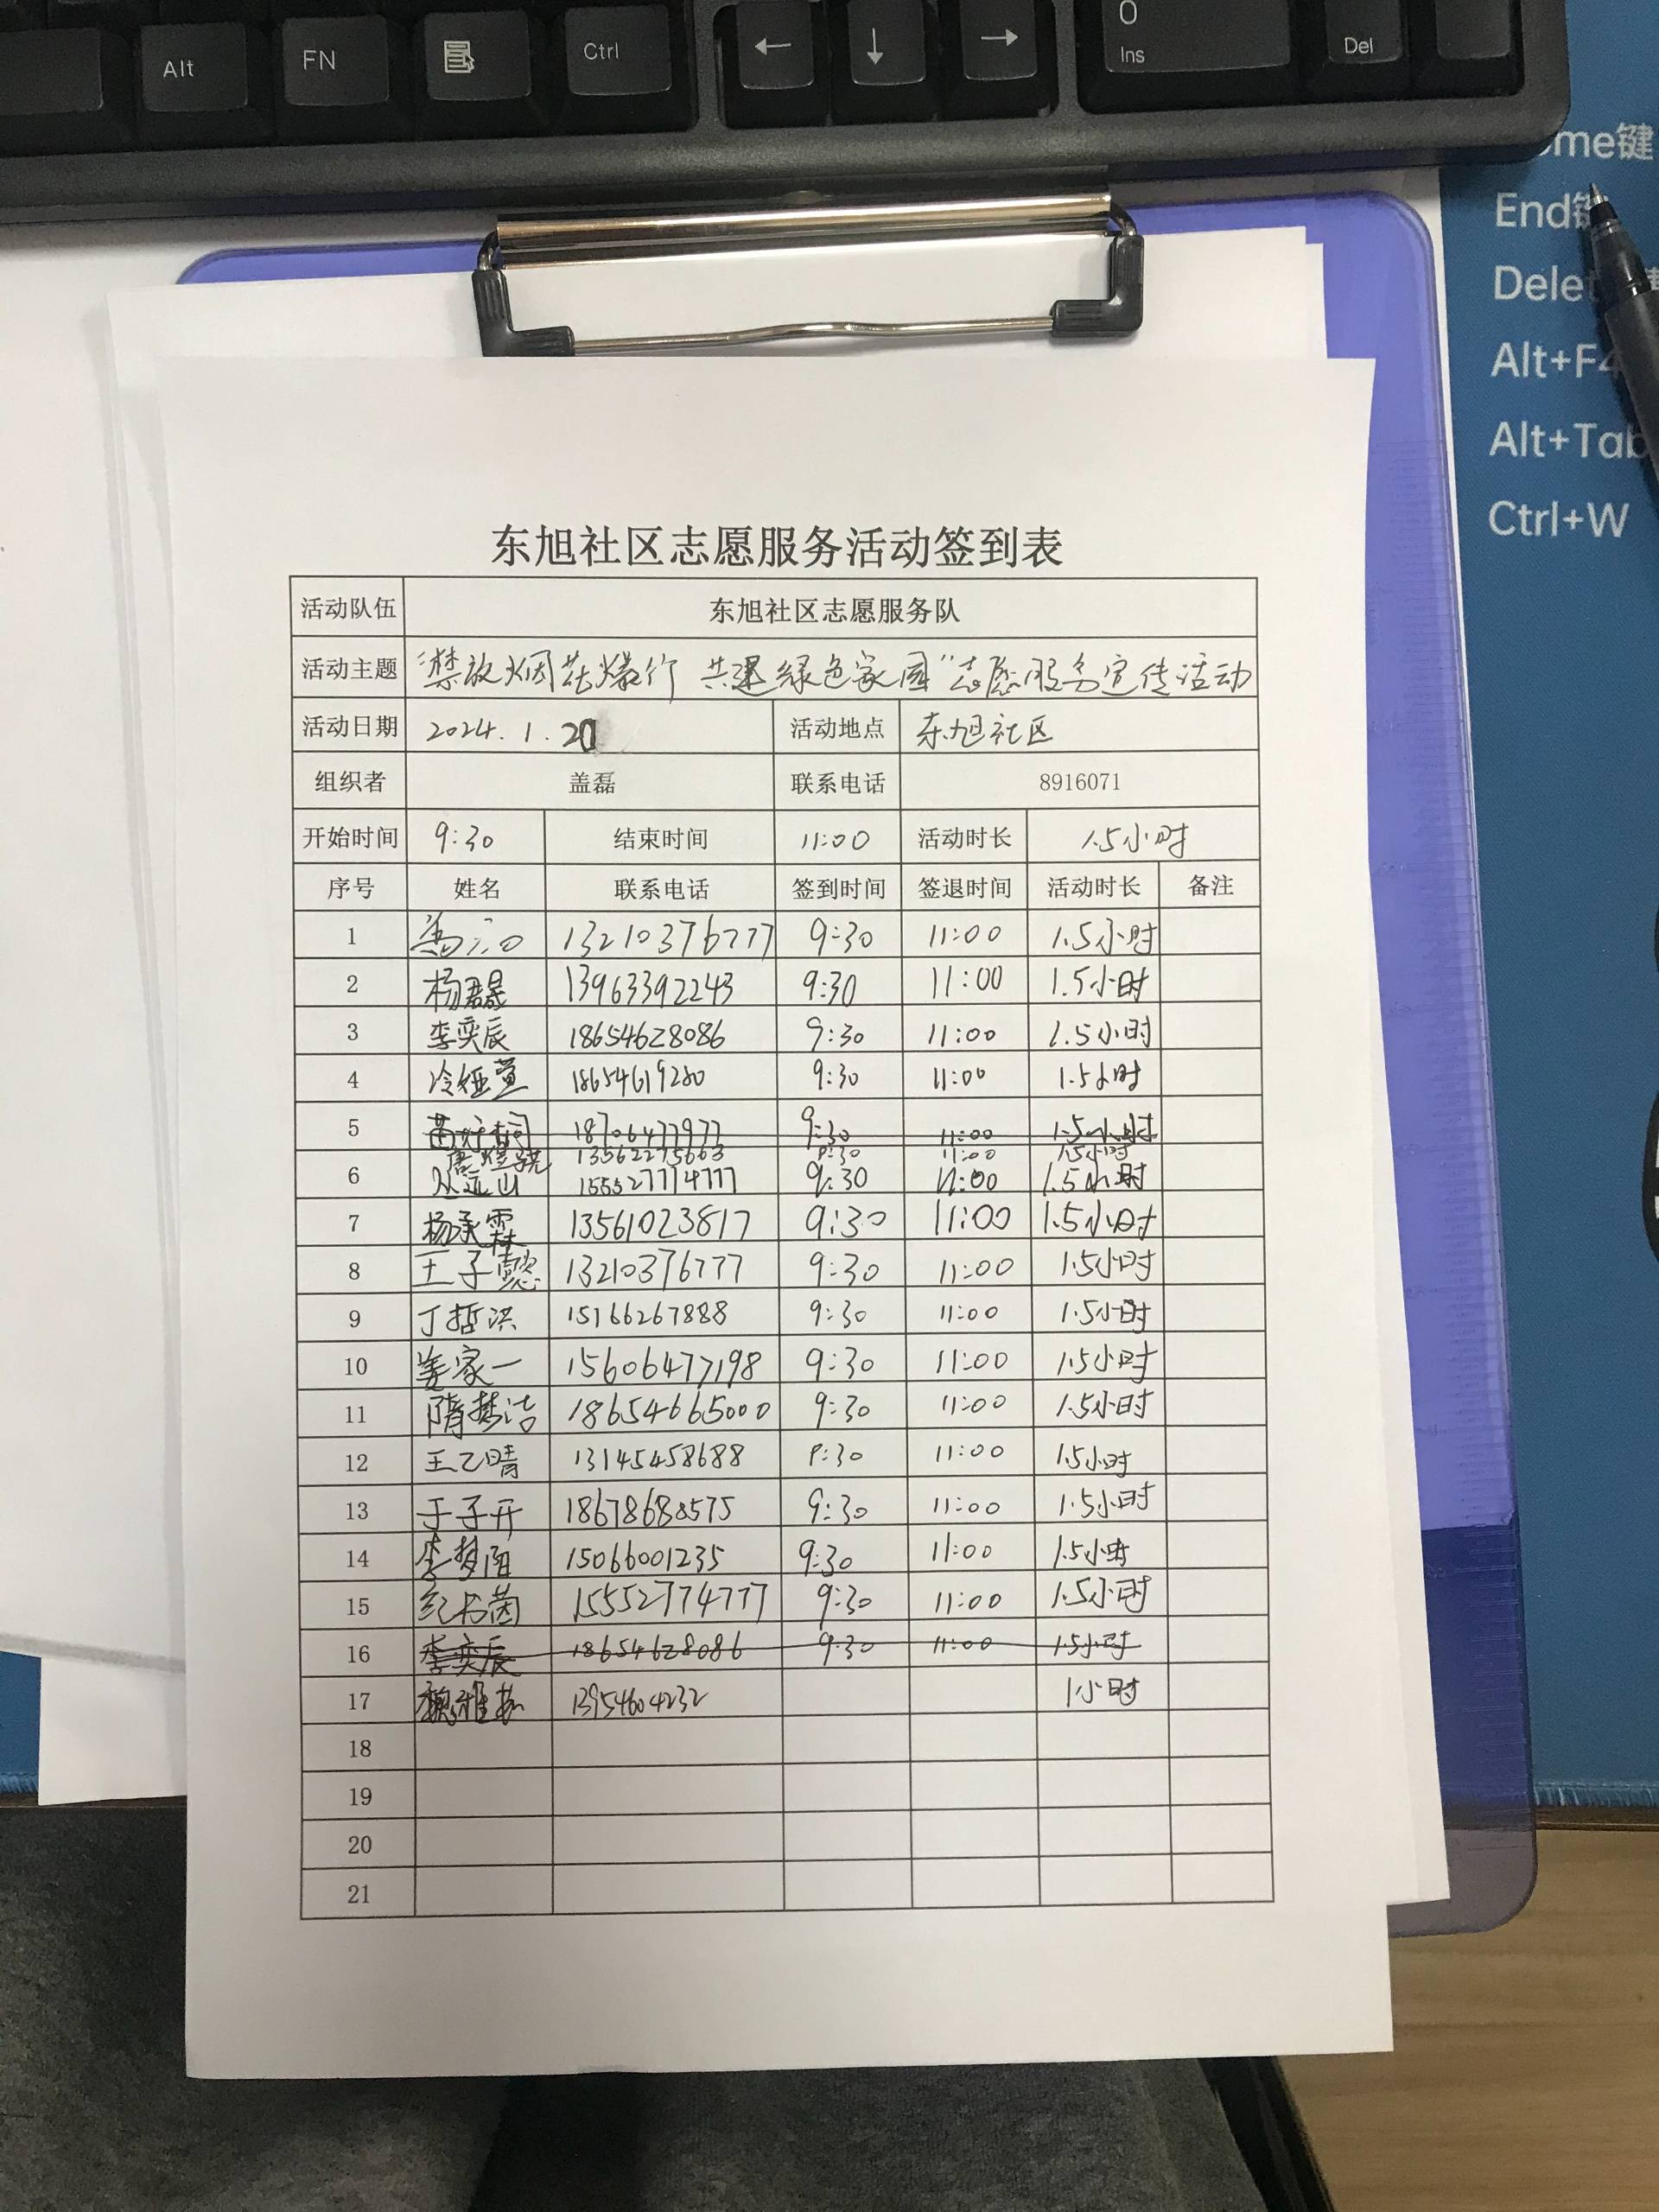 0
Alt FN Ctrl ← ↓ → Ins Del
me键
End键
Delet
Alt+F4
Alt+Tab
Ctrl+W
东旭社区志愿服务活动签到表
活动队伍 东旭社区志愿服务队
活动主题 "禁放烟花爆竹 共建绿色家园"志愿服务宣传活动
活动日期 2024.1.20 活动地点 东旭社区
组织者 盖磊 联系电话 8916071
开始时间 9:30 结束时间 11:00 活动时长 1.5小时
序号 姓名 联系电话 签到时间 签退时间 活动时长 备注
1 13210376777 9:30 11:00 1.5小时
2 杨君晟 13963392243 9:30 11:00 1.5小时
3 李奕辰 18654628086 9:30 11:00 1.5小时
4 冷娅萱 18654619280 9:30 11:00 1.5小时
5 18706477977 9:30 11:00 1.5小时
13562275663 9:30 11:00 1.5小时
6 丛远山 15552774777 9:30 11:00 1.5小时
7 杨承霖 13561023817 9:30 11:00 1.5小时
8 王子懿 13210376777 9:30 11:00 1.5小时
9 丁哲洪 15166267888 9:30 11:00 1.5小时
10 姜家一 15606477198 9:30 11:00 1.5小时
11 隋梦洁 18654665000 9:30 11:00 1.5小时
12 王乙晴 13145458688 9:30 11:00 1.5小时
13 于子开 18678688575 9:30 11:00 1.5小时
14 李梦阳 15066001235 9:30 11:00 1.5小时
15 纪书茵 15552774777 9:30 11:00 1.5小时
16 李奕辰 18654628086 9:30 11:00 1.5小时
17 13954604232 1小时
18
19
20
21